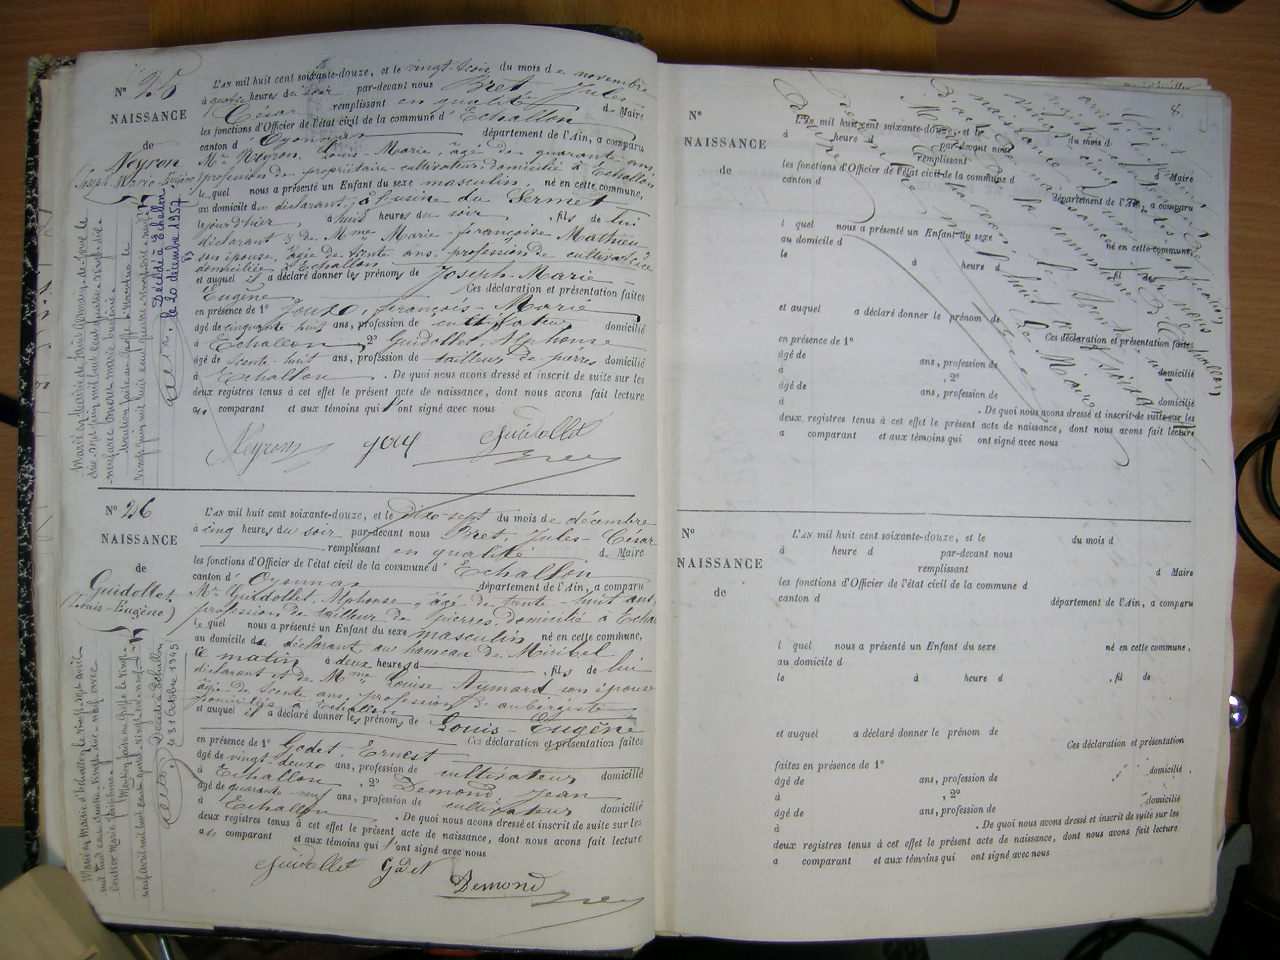 Nº 25
NAISSANCE
de
Neyron
Joseph Marie Eugène
Décédé à Echallon
le 20 décembre 1957
L'AN mil huit cent soixante-douze, et le vingt-trois du mois de novembre
à quatre heures du soir par-devant nous Bret, Jules-
César remplissant en qualité de Maire
les fonctions d'Officier de l'état civil de la commune d'Echallon
canton d'Oyonnax département de l'Ain, a comparu
Mr Neyron, Louis-Marie, âgé de quarante ans,
profession de propriétaire-cultivateur, domicilié à Echallon
lequel nous a présenté un Enfant du sexe masculin, né en cette commune,
au domicile du déclarant, à l'usine du Sermet
le jour d'hier à huit heures du soir, fils de lui
déclarant & de Mme Marie-françoise Mathieu
son épouse, âgée de trente ans, profession de cultivatrice
domiciliée à Echallon
et auquel il a déclaré donner les prénoms de Joseph-Marie
Eugène Ces déclaration et présentation faites
en présence de 1º Joux, françois Marie
âgé de cinquante huit ans, profession de cultivateur domicilié
à Echallon, 2º Guidollet, Alphonse
âgé de trente-huit ans, profession de tailleur de pierres domicilié
à Echallon. De quoi nous avons dressé et inscrit de suite sur les
deux registres tenus à cet effet le présent acte de naissance, dont nous avons fait lecture
au comparant et aux témoins qui l'ont signé avec nous
Neyron Joux Guidollet
Bret
Nº 26
NAISSANCE
de
Guidollet
(Louis-Eugène)
Décédé à Echallon
le 31 Octobre 1945
L'AN mil huit cent soixante-douze, et le dix-sept du mois de décembre
à cinq heures du soir par-devant nous Bret, Jules-César
remplissant en qualité de Maire
les fonctions d'Officier de l'état civil de la commune d'Echallon
canton d'Oyonnax département de l'Ain, a comparu
Mr Guidollet, Alphonse, âgé de trente-huit ans,
profession de tailleur de pierres, domicilié à Echallon
lequel nous a présenté un Enfant du sexe masculin né en cette commune,
au domicile du déclarant au hameau de Miribel
ce matin à deux heures d , fils de lui
déclarant et de Mme Louise Aymard son épouse
âgée de trente ans, profession d'aubergiste
domiciliée à Echallon
et auquel il a déclaré donner les prénoms de Louis-Eugène
Ces déclaration et présentation faites
en présence de 1º Godet-Ernest
âgé de vingt-deux ans, profession de cultivateur domicilié
à Echallon, 2º Demond Jean
âgé de quarante-neuf ans, profession de cultivateur domicilié
à Echallon. De quoi nous avons dressé et inscrit de suite sur les
deux registres tenus à cet effet le présent acte de naissance, dont nous avons fait lecture
au comparant et aux témoins qui l'ont signé avec nous
Guidollet Godet
Demond Bret
Nº
NAISSANCE
de
L'AN mil huit cent soixante-douze, et le du mois d
à heure d par-devant nous
remplissant d Maire
les fonctions d'Officier de l'état civil de la commune d
canton d département de l'Ain, a comparu
l quel nous a présenté un Enfant du sexe né en cette commune,
au domicile d
le à heure d , fil de
et auquel a déclaré donner le prénom de
Ces déclaration et présentation faites
en présence de 1º
âgé de ans, profession de domicilié
à , 2º
âgé de ans, profession de domicilié
à . De quoi nous avons dressé et inscrit de suite sur les
deux registres tenus à cet effet le présent acte de naissance, dont nous avons fait lecture
a comparant et aux témoins qui ont signé avec nous
Nº
NAISSANCE
de
L'AN mil huit cent soixante-douze, et le du mois d
à heure d par-devant nous
remplissant d Maire
les fonctions d'Officier de l'état civil de la commune d
canton d département de l'Ain, a comparu
l quel nous a présenté un Enfant du sexe né en cette commune,
au domicile d
le à heure d , fil de
et auquel a déclaré donner le prénom de
Ces déclaration et présentation
faites en présence de 1º
âgé de ans, profession de domicilié
à , 2º
âgé de ans, profession de domicilié
à . De quoi nous avons dressé et inscrit de suite sur les
deux registres tenus à cet effet le présent acte de naissance, dont nous avons fait lecture
a comparant et aux témoins qui ont signé avec nous